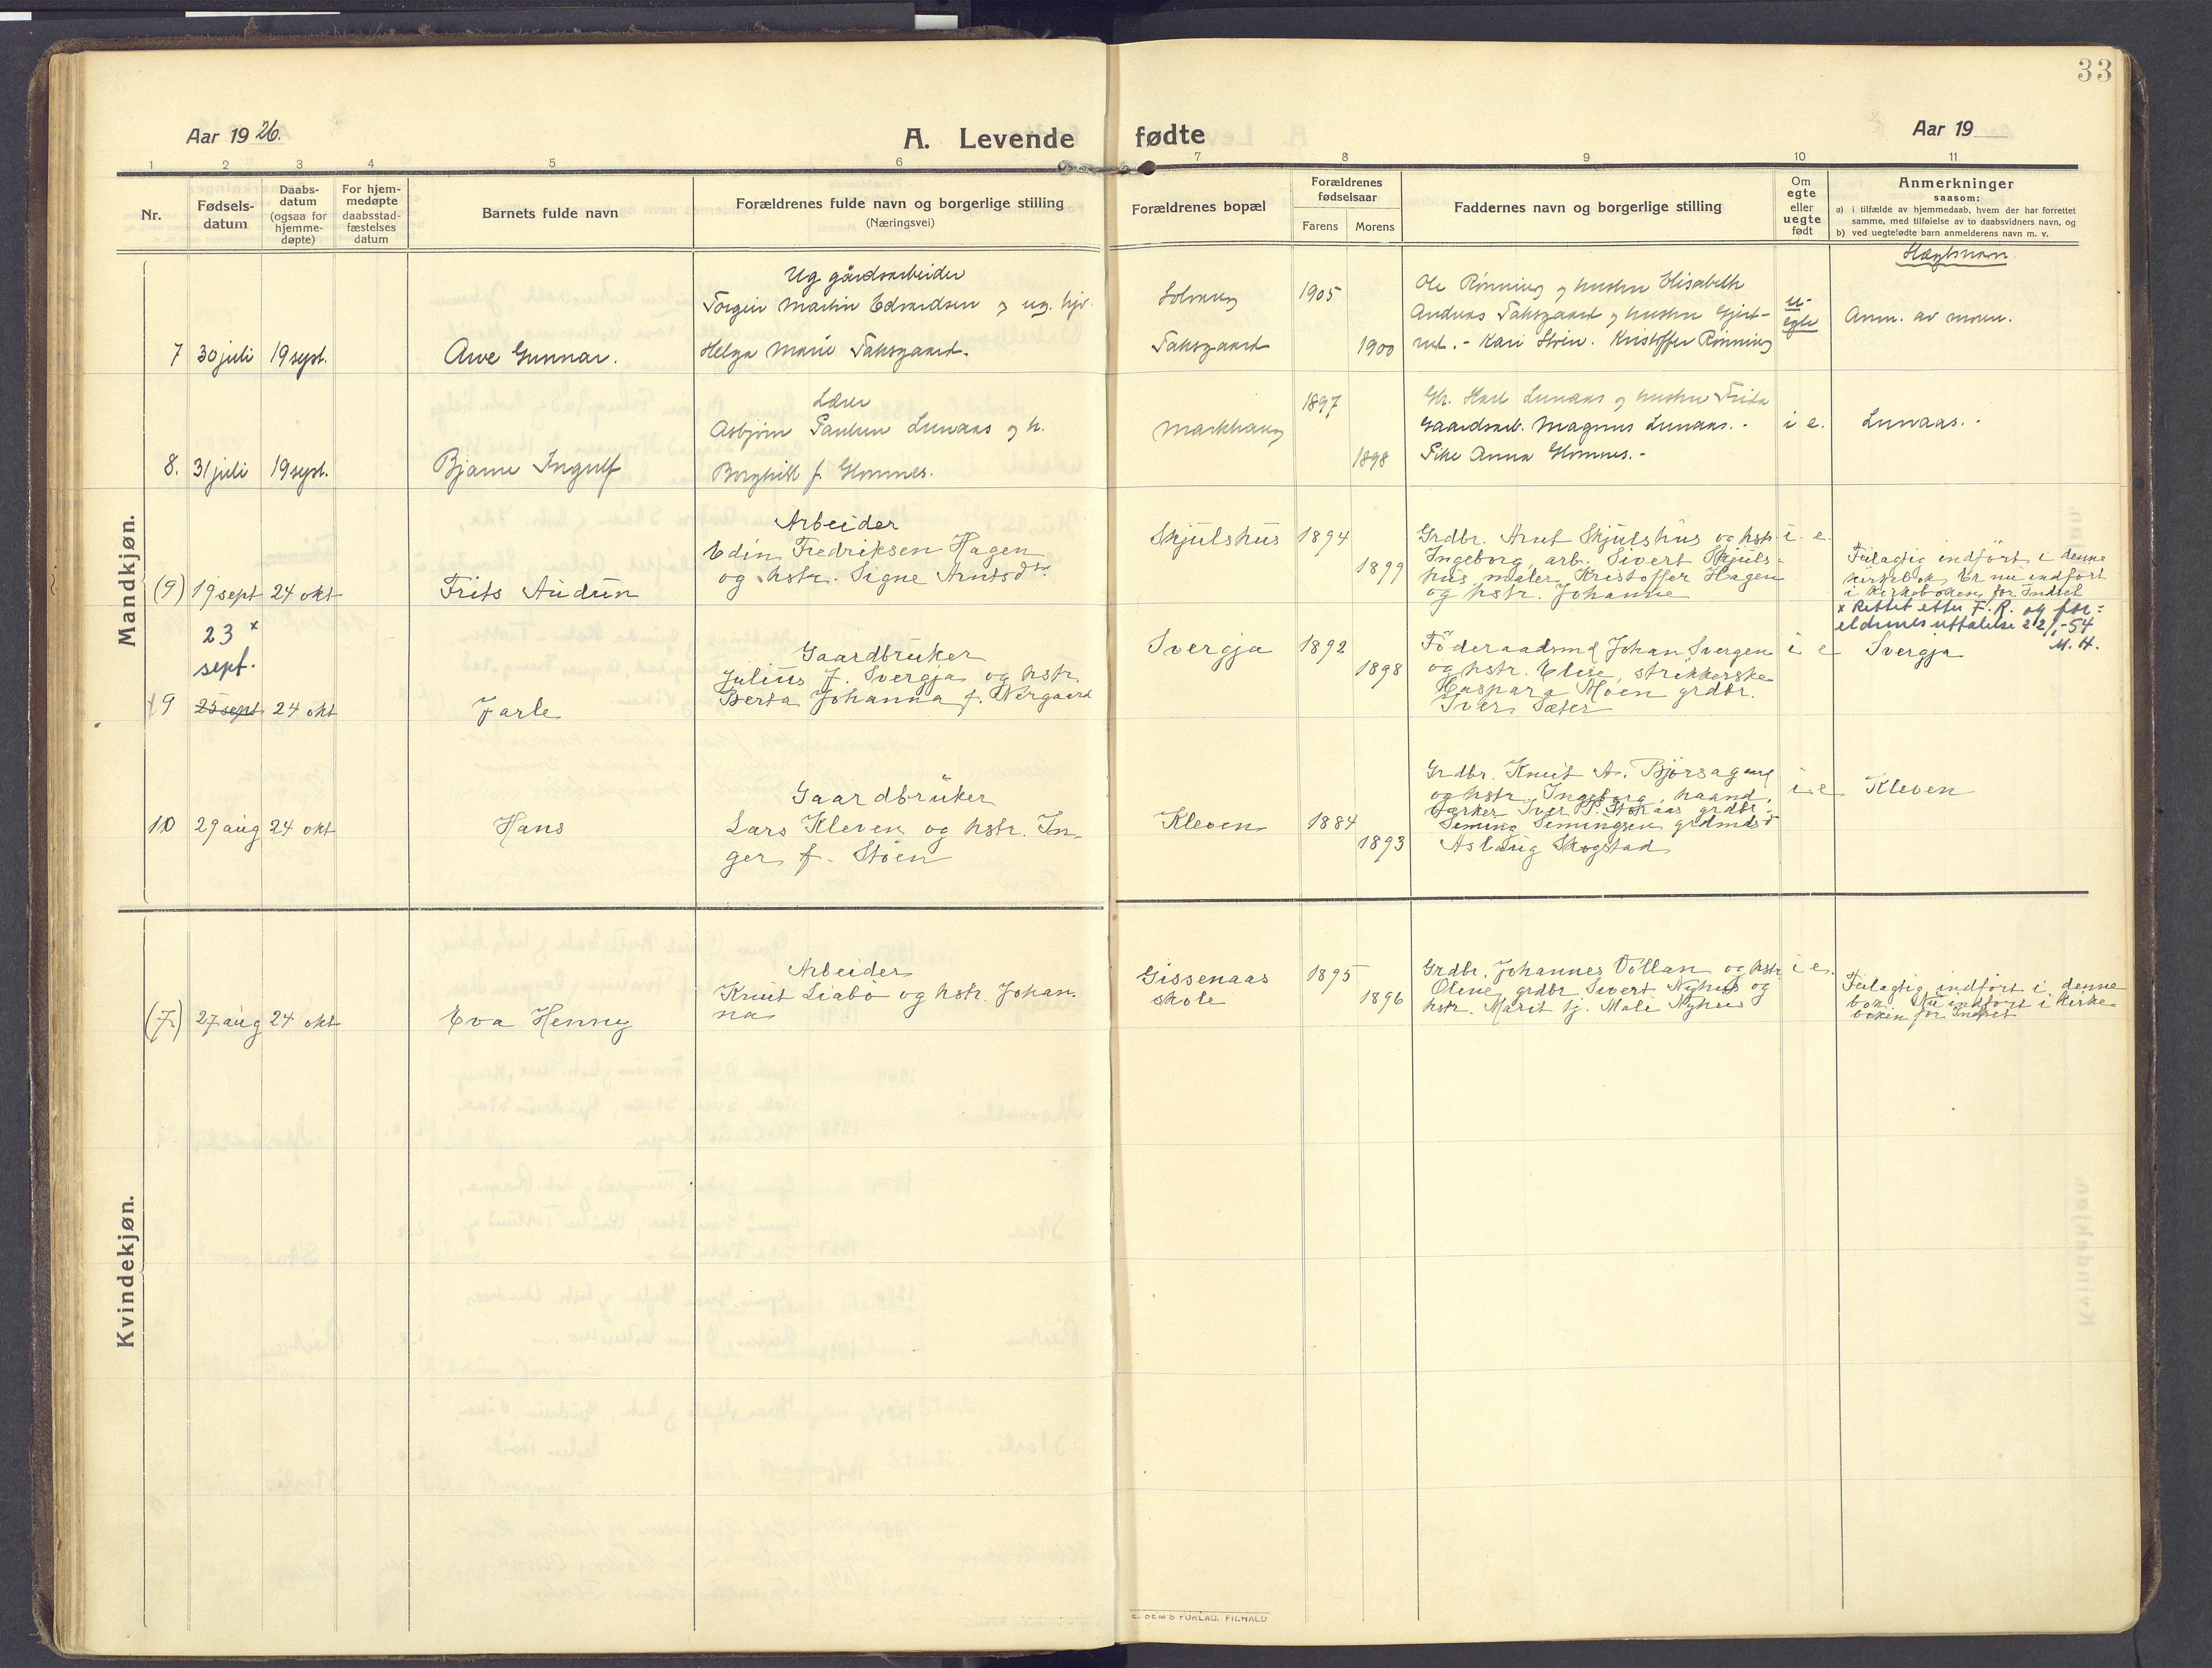 33
Aar 1926.
A. Levende
fødte
Aar 19
1 2 3 4 5 6 7 8 9 10 11
Nr.
Fødsels-
datum
Daabs-
datum
(ogsaa for
hjemme-
døpte)
For hjem-
medøpte
daabsstad-
fæstelses
datum
Barnets fulde navn
Forældrenes fulde navn og borgerlige stilling
(Næringsvei)
Forældrenes bopæl
Forældrenes
fødselsaar
Farens Morens
Faddernes navn og borgerlige stilling
Om
egte
eller
uegte
født
Anmerkninger
saasom:
a) i tilfælde av hjemmedaab, hvem der har forrettet
samme, med tilføielse av to daabsvidners navn, og
b) ved uegtefødte barn anmelderens navn m. v.
Slægtsnavn.
Mandkjøn.
7 30 juli 19 sept. Arve Gunnar.
Ug gårdsarbeider
Torgeir Martin Edvardsen og ug.
Helga Marie Taksgaard.
Solvang
Taksgaard
1905
1900
Ole Rønning og hustru Elisabeth
Andreas Taksgaard og hustru Gjert-
rud. - Kari Stöen. Kristoffer Rønning
u-
egte
Anm. av moren.
8. 31 juli 19 sept. Bjarne Ingulf
Lærer
Asbjørn Paulsen Lunaas og h.
Borghild f. Glomnes.
Markhaug
1897
1898
Gbr. Karl Lunaas og hustru Frida
Gaardsarb. Magnus Lunaas. -
Pike Anna Glomnes. -
i e.
Lunaas. -
(9) 19 sept 24 okt Frits Audun
Arbeider
Edin Fredriksen Hagen
og hstr. Signe Arntsdtr
Skjulshus
1894
1899
Grdbr. Arnt Skjulshus og hstr
Ingeborg, arb. Sivert Skjuls-
hus, maler Kristoffer Hagen
og hstr. Johanne
i e.
Feilagtig indført i denne
kirkebok. Er nu indført
i kirkeboken for Indset
x Rettet etter F. R. og for=
eldrenes uttalelse 22/1-54
M. H.
23 x
sept.
9 25 sept 24 okt Jarle
Gaardbruker
Julius J. Svergja og hstr
Berta Johanna f. Nergaard
Svergja
1892
1898
Föderaadsmd Johan Svergen
og hstr. Elise, strikkerske
Kaspara Moen grdbr.
Iver Sæter
i e
Svergja
10 29 aug 24 okt Hans
Gaardbruker
Lars Kleven og hstr. In-
ger f. Stöen
Kleven
1884
1893
Grdbr. Knut A. Bjørsagaard
og hstr. Ingeborg, haand,
værker Iver P. Stokaas grdbr
Seming Semingsen grdmdsd
Aslaug Skogstad
i e
Kleven
Kvindekjøn.
(7) 27 aug 24 okt Eva Henny
Arbeider
Knut Liabö og hstr. Johan-
na
Gissenaas
skole
1895
1896
Grdbr. Johannes Vollan og hstr
Oline, grdbr Sivert Nyhus og
hstr. Marit tj. Mali Nyhus
i e.
Feilagtig indført i denne
bok. Nu indført i kirke-
boken for Indset